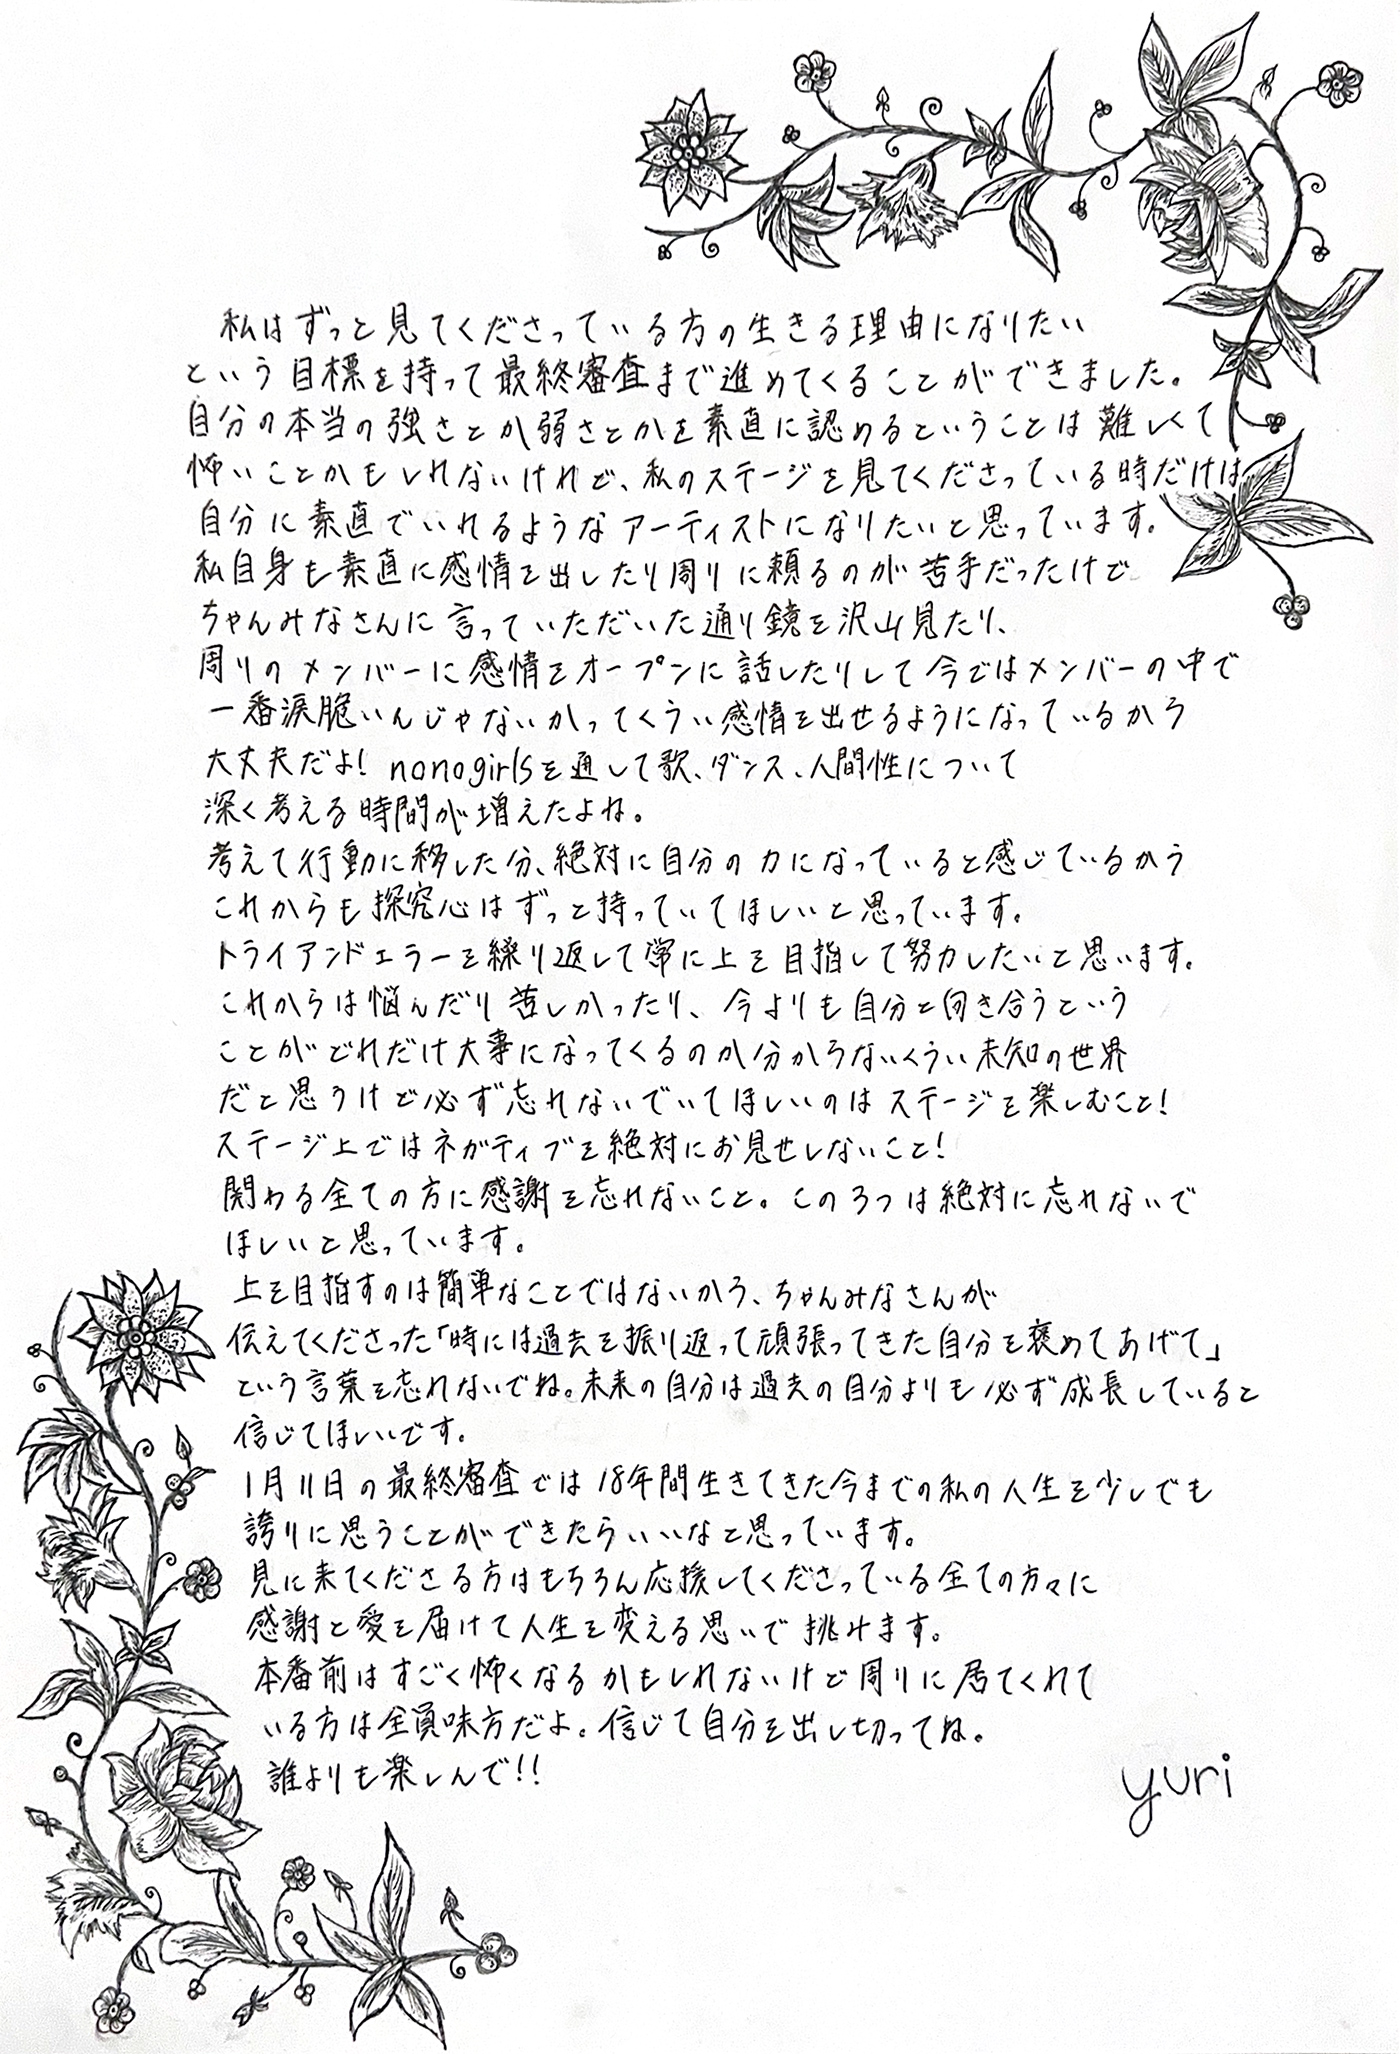 私はずっと見てくださっている方の生きる理由になりたい
という目標を持って最終審査まで進めてくることができました。
自分の本当の強さとか弱さとかを素直に認めるということは難しくて
怖いことかもしれないけれど、私のステージを見てくださっている時だけは
自分に素直でいれるようなアーティストになりたいと思っています。
私自身も素直に感情を出したり周りに頼るのが苦手だったけど
ちゃんみなさんに言っていただいた通り鏡を沢山見たり、
周りのメンバーに感情をオープンに話したりして今ではメンバーの中で
一番涙脆いんじゃないかってくらい感情を出せるようになっているから
大丈夫だよ! nonogirlsを通して歌、ダンス、人間性について
深く考える時間が増えたよね。
考えて行動に移した分、絶対に自分の力になっていると感じているから
これからも探究心はずっと持っていてほしいと思っています。
トライアンドエラーを繰り返して常に上を目指して努力したいと思います。
これからは悩んだり苦しかったり、今よりも自分と向き合うという
ことがどれだけ大事になってくるのか分からないくらい未知の世界
だと思うけど必ず忘れないでいてほしいのはステージを楽しむこと!
ステージ上ではネガティブを絶対にお見せしないこと!
関わる全ての方に感謝を忘れないこと。この3つは絶対に忘れないで
ほしいと思っています。
上を目指すのは簡単なことではないから、ちゃんみなさんが
伝えてくださった「時には過去を振り返って頑張ってきた自分を褒めてあげて」
という言葉を忘れないでね。未来の自分は過去の自分よりも必ず成長していると
信じてほしいです。
1月11日の最終審査では18年間生きてきた今までの私の人生を少しでも
誇りに思うことができたらいいなと思っています。
見に来てくださる方はもちろん応援してくださっている全ての方々に
感謝と愛を届けて人生を変える思いで挑みます。
本番前はすごく怖くなるかもしれないけど周りに居てくれて
いる方は全員味方だよ。信じて自分を出し切ってね。
誰よりも楽しんで!!
yuri